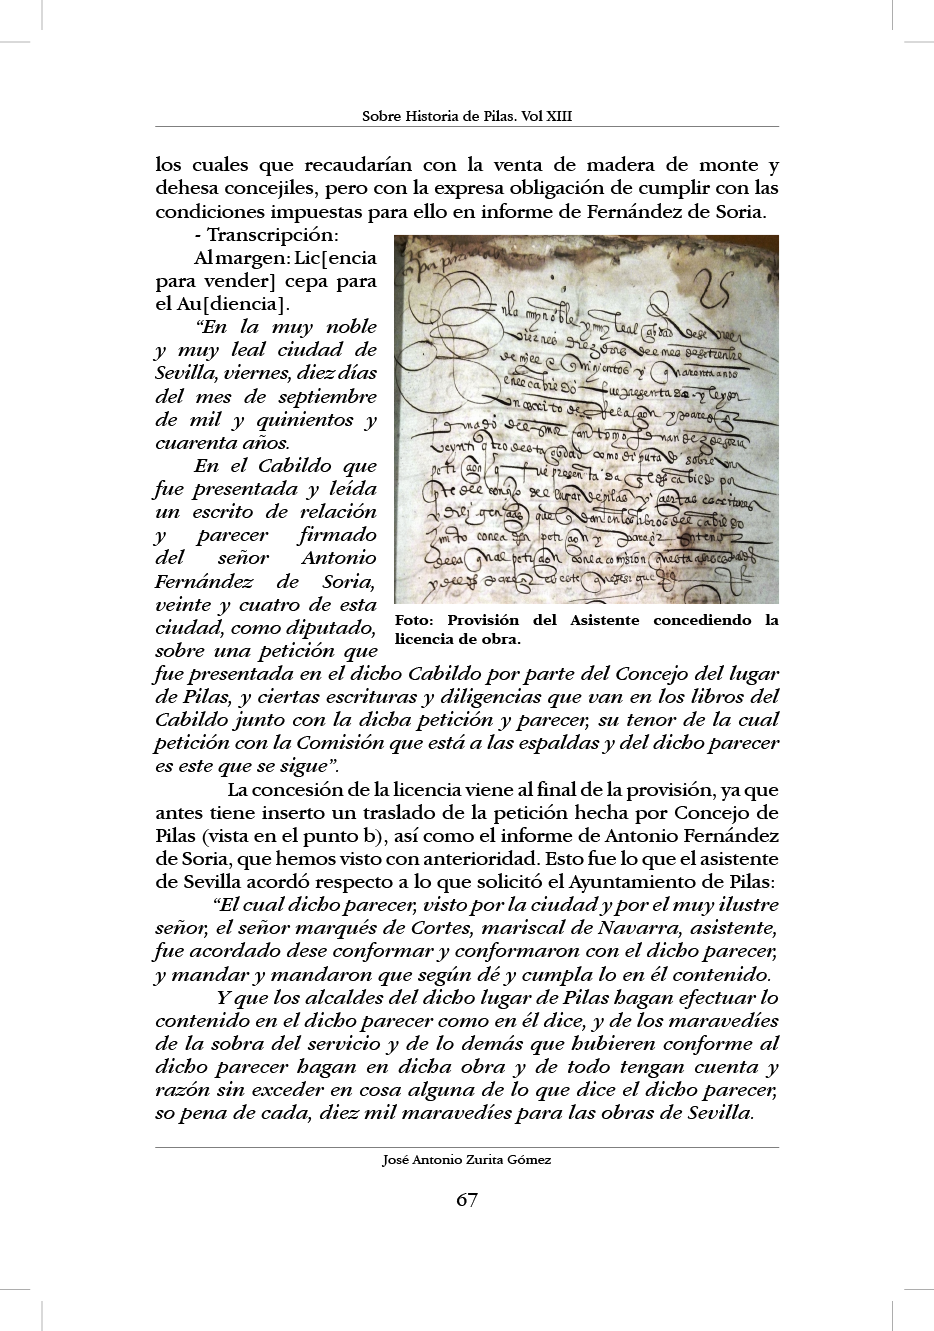 Sobre Historia de Pilas. Vol XIII
los cuales que recaudarían con la venta de madera de monte y
dehesa concejiles, pero con la expresa obligación de cumplir con las
condiciones impuestas para ello en informe de Fernández de Soria.
- Transcripción:
Al margen: Lic[encia
para vender] cepa para
el Au[diencia].
“En la muy noble
y muy leal ciudad de
Sevilla, viernes, diez días
del mes de septiembre
de mil y quinientos y
cuarenta años.
En el Cabildo que
fue presentada y leída
un escrito de relación
y parecer firmado
del señor Antonio
Fernández de Soria,
veinte y cuatro de esta
ciudad, como diputado,
sobre una petición que
Foto: Provisión del Asistente concediendo la
licencia de obra.
fue presentada en el dicho Cabildo por parte del Concejo del lugar
de Pilas, y ciertas escrituras y diligencias que van en los libros del
Cabildo junto con la dicha petición y parecer, su tenor de la cual
petición con la Comisión que está a las espaldas y del dicho parecer
es este que se sigue”.
La concesión de la licencia viene al final de la provisión, ya que
antes tiene inserto un traslado de la petición hecha por Concejo de
Pilas (vista en el punto b), así como el informe de Antonio Fernández
de Soria, que hemos visto con anterioridad. Esto fue lo que el asistente
de Sevilla acordó respecto a lo que solicitó el Ayuntamiento de Pilas:
“El cual dicho parecer, visto por la ciudad y por el muy ilustre
señor, el señor marqués de Cortes, mariscal de Navarra, asistente,
fue acordado dese conformar y conformaron con el dicho parecer,
y mandar y mandaron que según dé y cumpla lo en él contenido.
Y que los alcaldes del dicho lugar de Pilas hagan efectuar lo
contenido en el dicho parecer como en él dice, y de los maravedíes
de la sobra del servicio y de lo demás que hubieren conforme al
dicho parecer hagan en dicha obra y de todo tengan cuenta y
razón sin exceder en cosa alguna de lo que dice el dicho parecer,
so pena de cada, diez mil maravedíes para las obras de Sevilla.
José Antonio Zurita Gómez
67